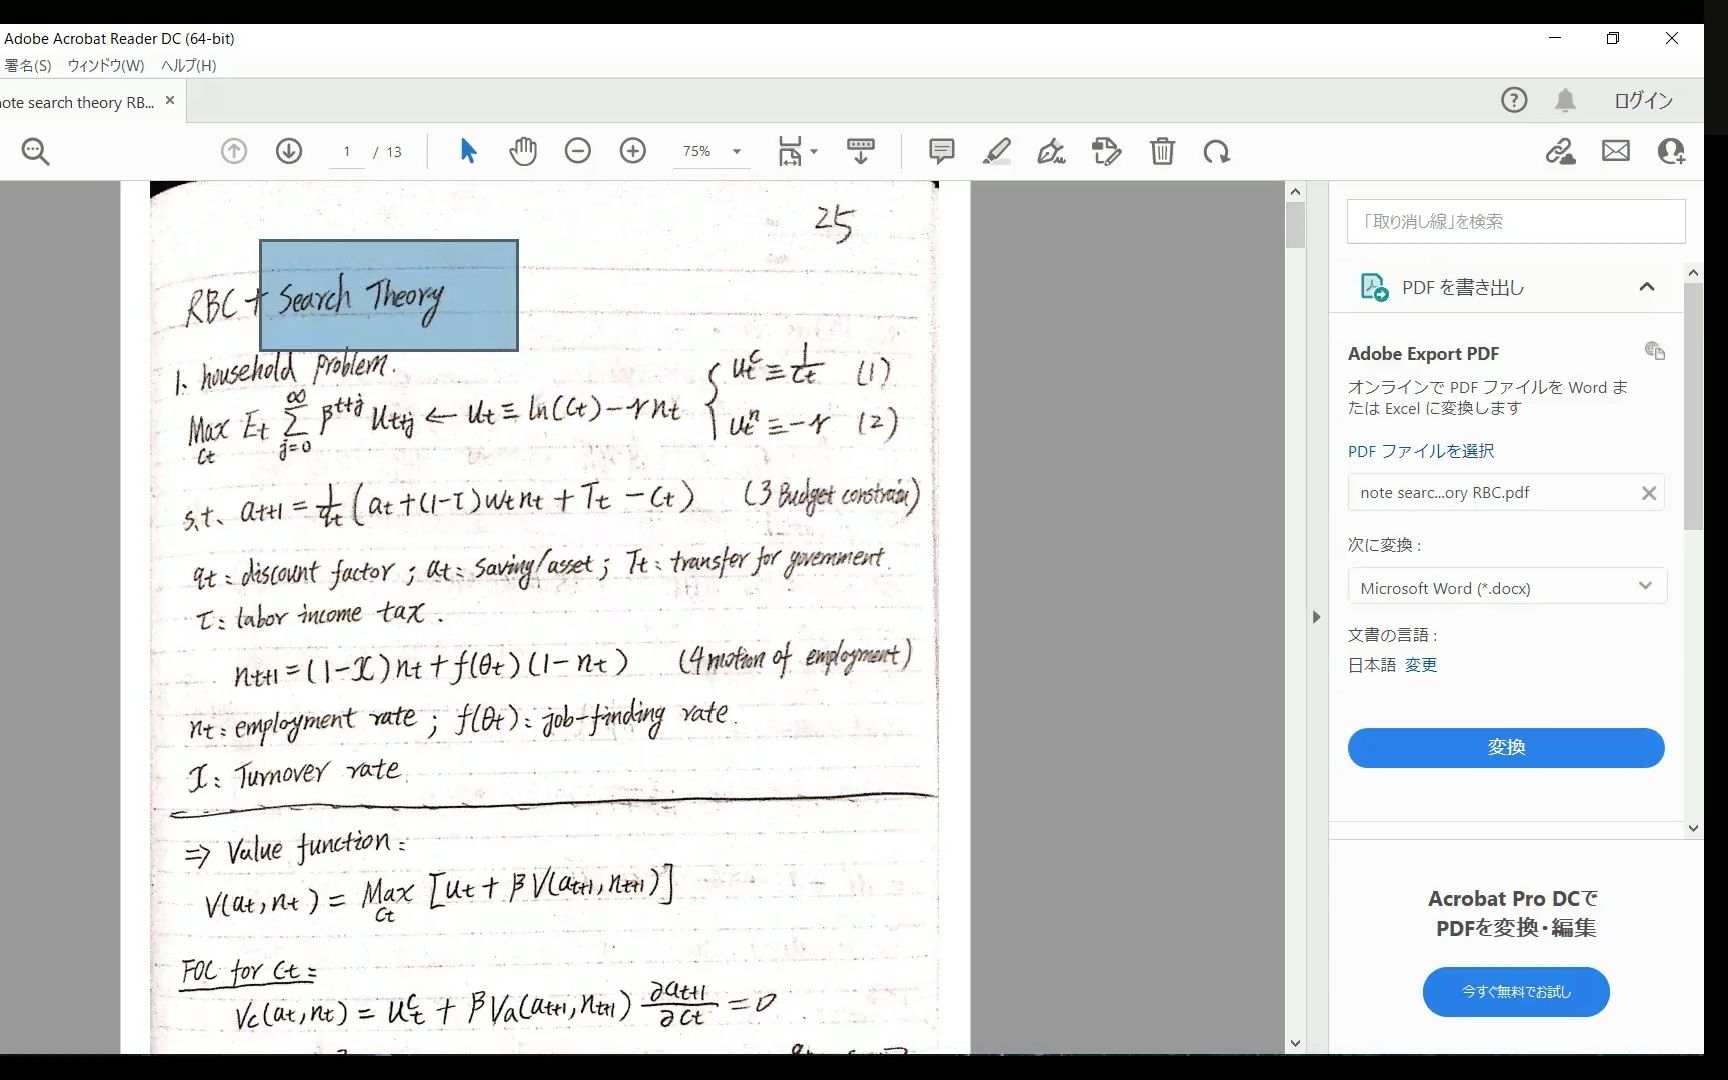 Adobe Acrobat Reader DC (64-bit)
署名(S) ウィンドウ(W) ヘルプ(H)
ote search theory RB... ×
ログイン
1 / 13
75%
25
RBC + Search Theory
1. household problem.
Max Et ∑ β^{t+j} Ut+j ← Ut ≡ ln(Ct) - γ nt
Ct j=0 ∞
Ut^c ≡ 1/Ct (1)
Ut^n ≡ -γ (2)
s.t. at+1 = 1/qt (at + (1-τ) wt nt + Tt - Ct) (3 Budget constrain)
qt: discount factor; at: saving/asset; Tt: transfer for government.
τ: labor income tax.
nt+1 = (1-x) nt + f(θt)(1-nt) (4 motion of employment)
nt: employment rate; f(θt): job-finding rate.
x: Turnover rate.
⇒ Value function:
V(at, nt) = Max [Ut + β V(at+1, nt+1)]
Ct
FOC for Ct:
Vc(at, nt) = Ut^c + β Va(at+1, nt+1) ∂at+1/∂Ct = 0
「取り消し線」を検索
PDF を書き出し
Adobe Export PDF
オンラインで PDF ファイルを Word ま
たは Excel に変換します
PDF ファイルを選択
note searc...ory RBC.pdf
次に変換 :
Microsoft Word (*.docx)
文書の言語 :
日本語 変更
変換
Acrobat Pro DCで
PDFを変換・編集
今すぐ無料でお試し